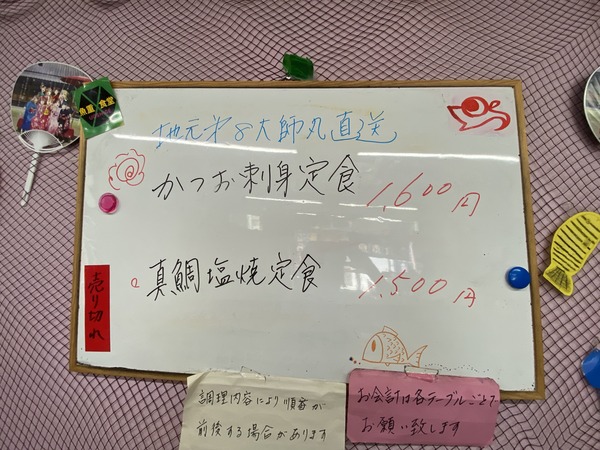 魚屋食堂
地元第8大師丸直送
かつお刺身定食 1,600円
真鯛塩焼定食 1,500円
売り切れ
調理内容により順番が
前後する場合があります
お会計は各テーブルごとで
お願い致します